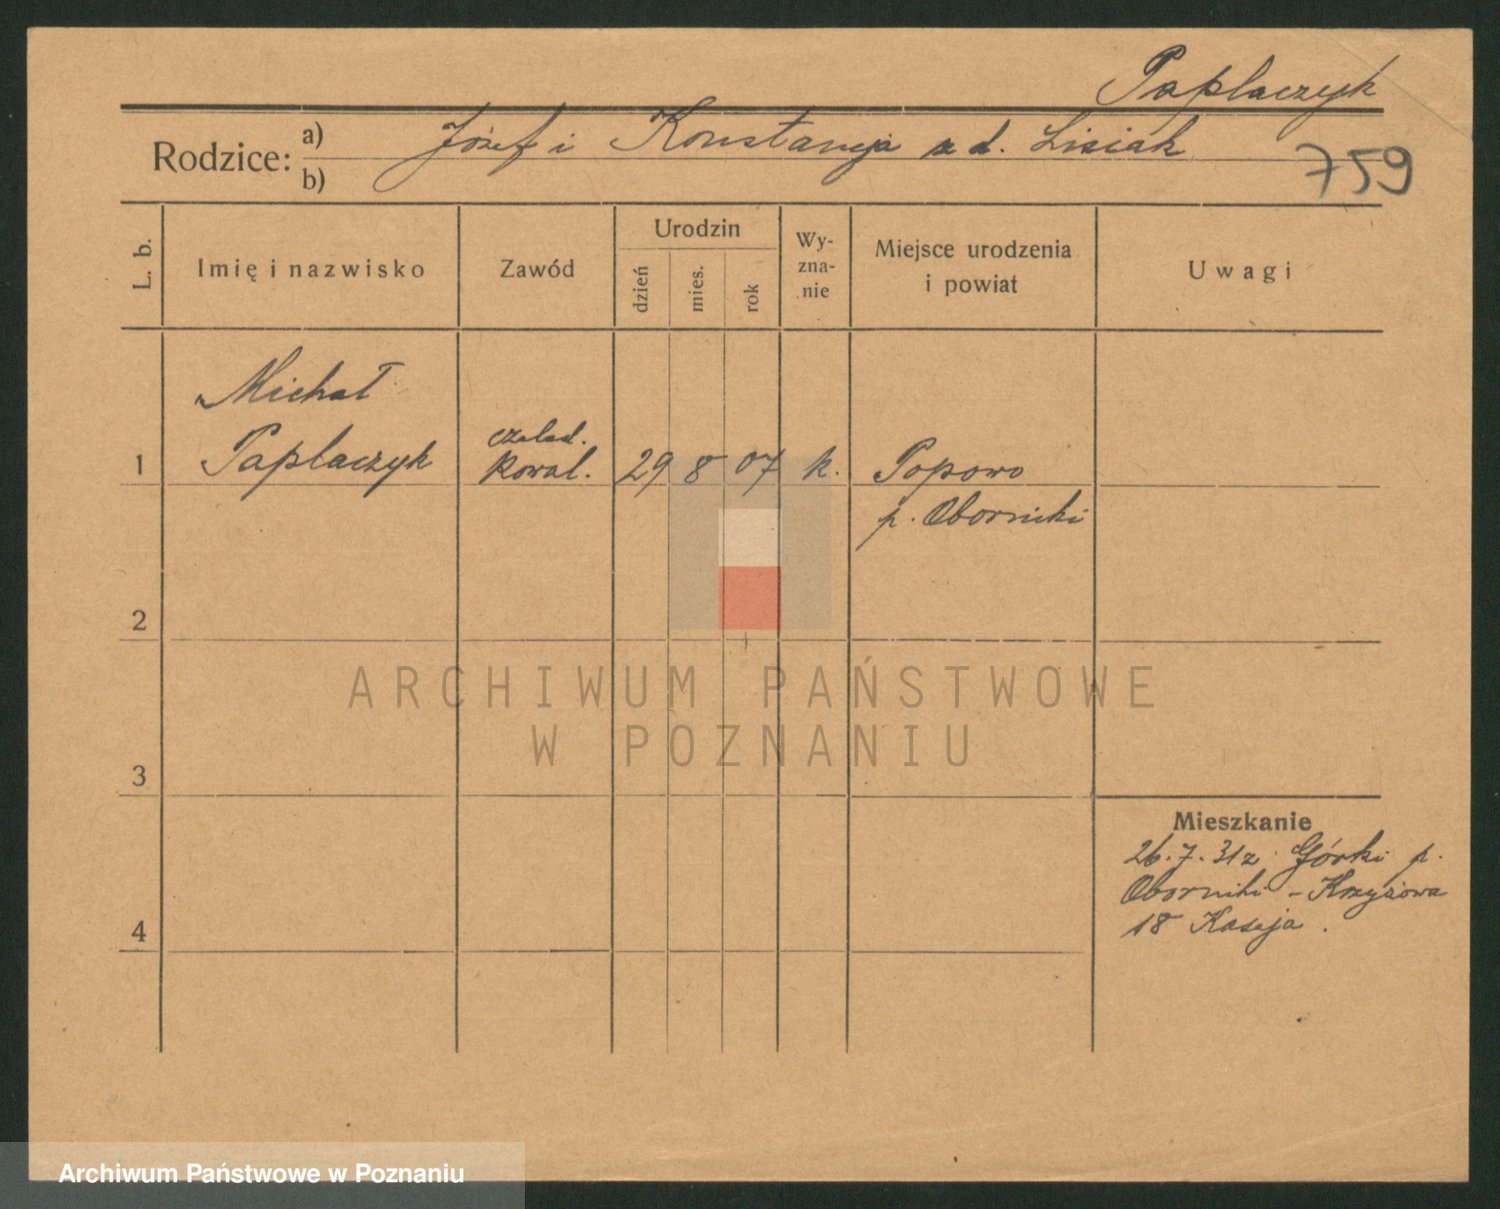 Paplaczyk
Rodzice: a) b) Józef i Konstancja z d. Lisiak
759
L. b.
Imię i nazwisko
Zawód
Urodzin
dzień
mies.
rok
Wy-
zna-
nie
Miejsce urodzenia
i powiat
Uwagi
Michał
Paplaczyk
czelad.
1 kowal. 29 8 07 k. Popowo
p. Oborniki
2
3
4
Mieszkanie
26.7.31 z Górki p.
Oborniki - Krzyżowa
18 Kaseja.
ARCHIWUM PAŃSTWOWE
W POZNANIU
Archiwum Państwowe w Poznaniu